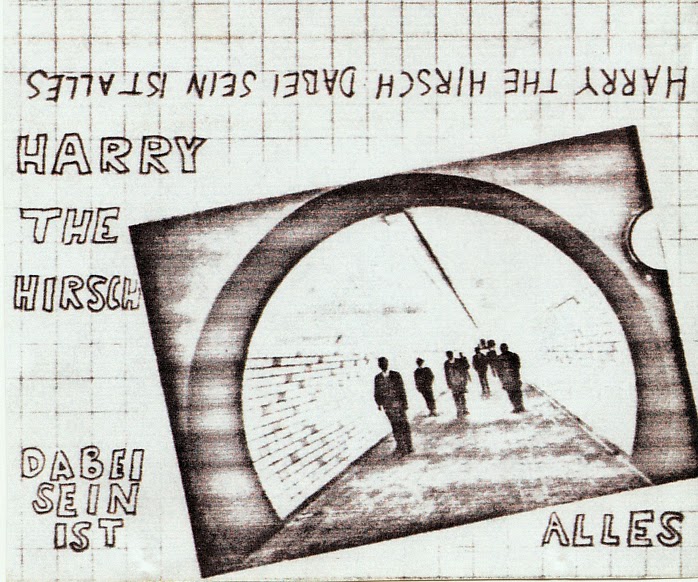 HARRY THE HIRSCH DABEI SEIN IST ALLES
HARRY
THE
HIRSCH
DABEI
SEIN
IST
ALLES